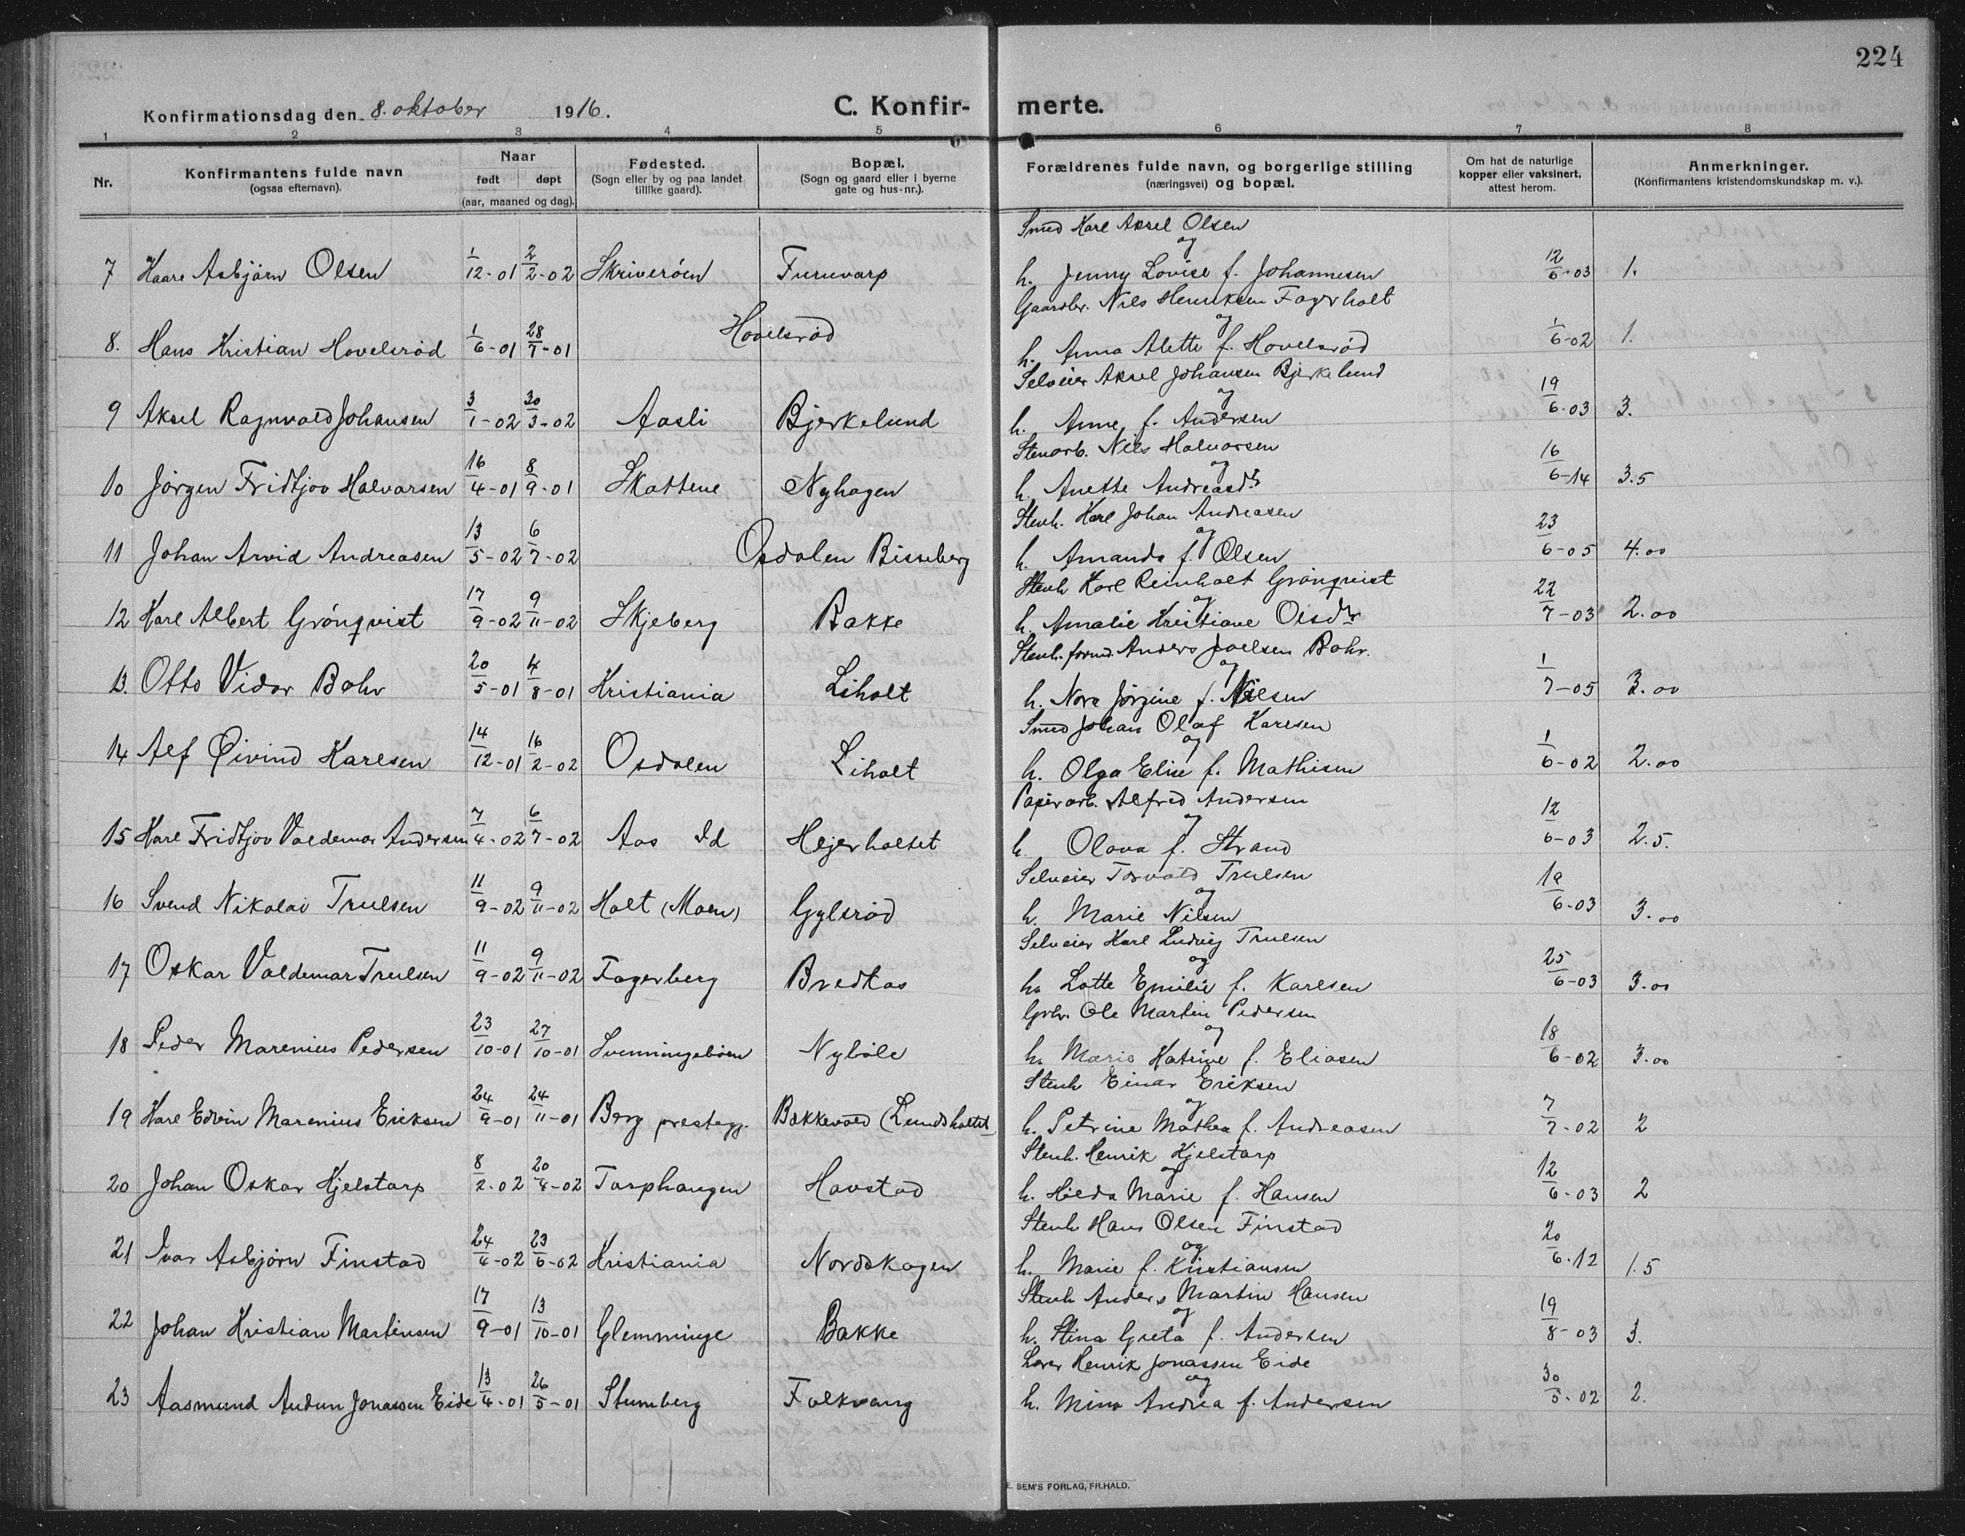 224
Konfirmationsdag den 8. oktober 1916. C. Konfirmerte.
1 2 3 4 5 6 7 8
Nr. Konfirmantens fulde navn (ogsaa efternavn). Naar født døpt (aar, maaned og dag). Fødested. (Sogn eller by og paa landet tillike gaard). Bopæl. (Sogn og gaard eller i byerne gate og hus-nr.). Forældrenes fulde navn, og borgerlige stilling (næringsvei) og bopæl. Om hat de naturlige kopper eller vaksinert, attest herom. Anmerkninger. (Konfirmantens kristendomskundskap m. v.).
Smed Karl Aksel Olsen
og
7 Kaare Asbjørn Olsen 1/12-01 2/2-02 Skriverøen Furuvarp h. Jenny Lovise f. Johannesen 12/6-03 1.
Gaardbr. Nils Henriksen Fagerholt
og
8. Hans Kristian Hovelsrød 1/6-01 28/7-01 Hovelsrød h. Anna Alette f. Hovelsrød 1/6-02 1.
Selveier Aksel Johansen Bjerkelund
og
9 Aksel Ragnvald Johansen 3/1-02 30/3-02 Aasli Bjerkelund h. Anne f. Andersen 19/6-03 3.
Stenarb. Nils Halvorsen
og
10 Jørgen Fridtjov Halvorsen 16/4-01 8/9-01 Skattene Nyhagen h. Anette Andreasdr 16/6-14 3.5
Stenh. Karl Johan Andreasen
og
11 Johan Arvid Andreasen 13/5-02 6/7-02 Osdalen Bisseberg h. Amanda f. Olsen 23/6-05 4.00
Stenh Karl Reinholt Grönqvist
og
12 Karl Albert Grönqvist 17/9-02 9/11-02 Skjeberg Bakke h. Amalie Kristiane Olsdr 22/7-03 2.00
Stenh. formd. Anders Joelsen Bohr.
og
13. Otto Vidar Bohr 20/5-01 4/8-01 Kristiania Liholt h. Nora Jørgine f. Nilsen 1/7-05 3.00
Smed Johan Olaf Karlsen
og
14 Alf Øivind Karlsen 14/12-01 16/2-02 Osdalen Liholt h. Olga Elise f. Mathisen 1/6-02 2.00
Papirarb. Alfred Andersen
og
15 Karl Fridtjov Valdemar Andersen 7/4-02 6/7-02 Aas Id Hejerholtet h. Olava f. Strand 12/6-03 2.5.
Selveier Torvald Trulsen
og
16 Svend Nikolai Trulsen 11/9-02 9/11-02 Holt (Moen) Gylsrød h. Marie Nilsen 19/6-03 3.00
Selveier Karl Ludvig Trulsen
og
17 Oskar Valdemar Trulsen 11/9-02 9/11-02 Fagerberg Bredkas h. Lotte Emilie f. Karlsen 25/6-03 3.00
Grbr. Ole Martin Pedersen
og
18 Peder Marenius Pedersen 23/10-01 27/10-01 Svenningsbøen Nybøle h. Maria Katrine f. Eliasen 18/6-02 3.00
Stenh Einar Eriksen
og
19 Karl Edvin Marenius Eriksen 24/9-01 24/11-01 Berg prestegj. Bakkevold (Lundsholtet h. Petrine Mathea f. Andreasen 7/7-02 2
Stenh. Henrik Hjelstarp
og
20 Johan Oskar Hjelstarp 8/2-02 20/4-02 Torphaugen Havstad h. Hilda Marie f. Hansen 12/6-03 2
Stenh Hans Olsen Finstad
og
21 Ivar Asbjørn Finstad 24/4-02 23/6-02 Kristiania Nordskogen h. Marie f. Kristiansen 20/6.12 1.5
Stenh Anders Martin Hansen
og
22 Johan Kristian Martinsen 17/9-01 13/10-01 Glemminge Bakke h. Stina Greta f. Andersen 19/8-03 3.
Lærer Henrik Jonassen Eide
og
23 Aasmund Audun Jonassen Eide 13/4-01 26/5-01 Stumberg Folkvang h. Mina Andrea f. Andersen 30/5-02 2.
E. SEM'S FORLAG, FR.HALD.